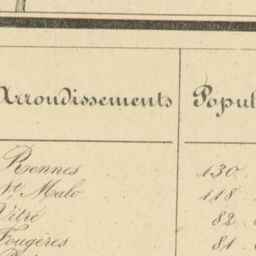 Arrondissements Popul
Rennes 130
St. Malo 118
Vitré 82
Fougères 81